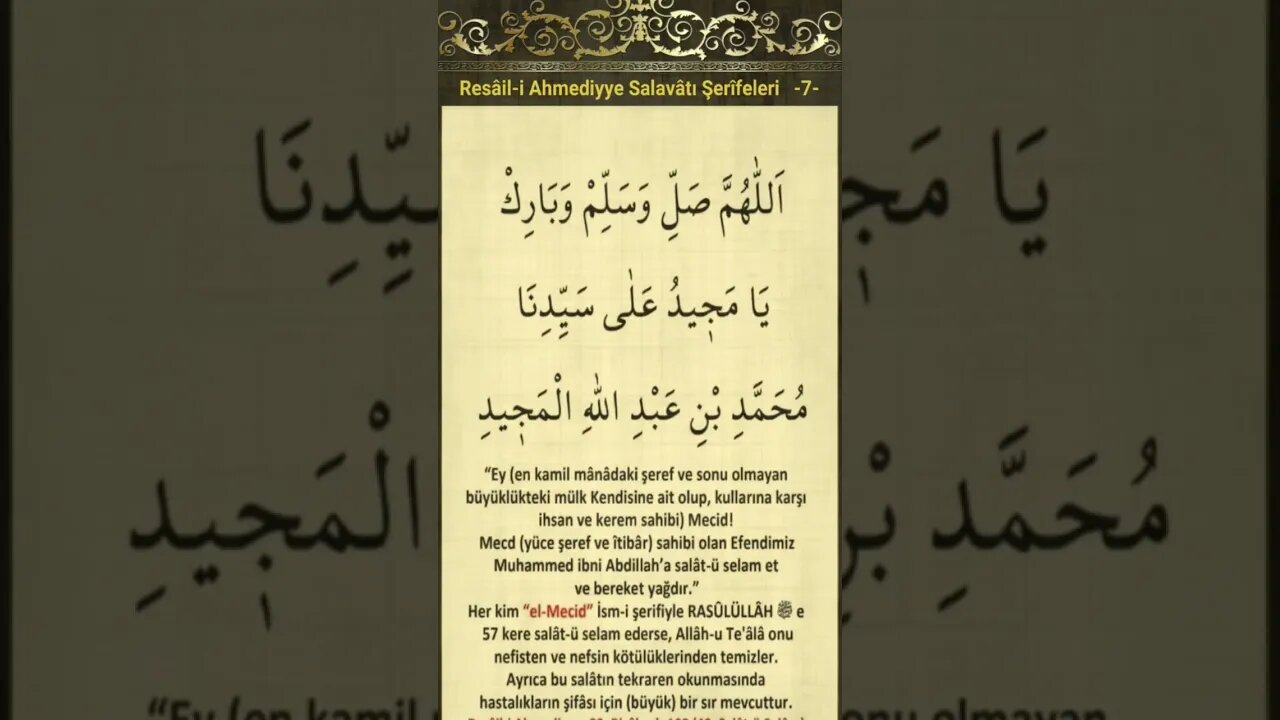 Resâil-i Ahmediyye Salavâtı Şerîfeleri -7-
اَللّٰهُمَّ صَلِّ وَسَلِّمْ وَبَارِكْ
يَا مَجٖيدُ عَلٰى سَيِّدِنَا
مُحَمَّدِ بْنِ عَبْدِ اللّٰهِ الْمَجٖيدِ
“Ey (en kamil mânâdaki şeref ve sonu olmayan
büyüklükteki mülk Kendisine ait olup, kullarına karşı
ihsan ve kerem sahibi) Mecid!
Mecd (yüce şeref ve îtibâr) sahibi olan Efendimiz
Muhammed ibni Abdillah’a salât-ü selam et
ve bereket yağdır.”
Her kim “el-Mecid” İsm-i şerifiyle RASÛLÜLLÂH ﷺ e
57 kere salât-ü selam ederse, Allâh-u Te'âlâ onu
nefisten ve nefsin kötülüklerinden temizler.
Ayrıca bu salâtın tekraren okunmasında
hastalıkların şifâsı için (büyük) bir sır mevcuttur.